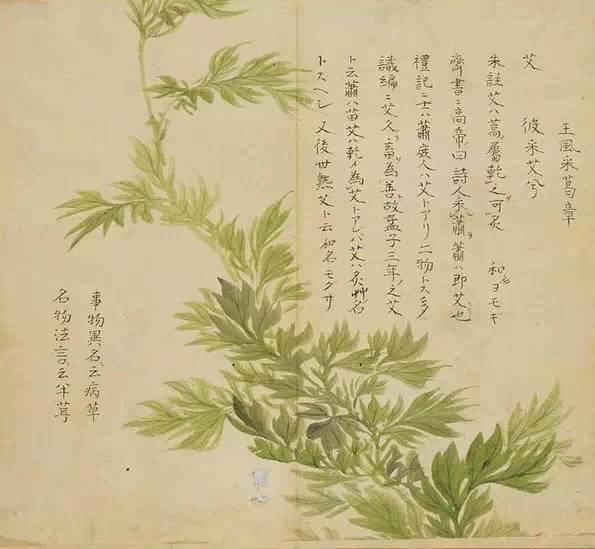 王風采葛章
艾 彼采艾兮
朱註艾ハ蒿屬乾之可炙 和名ヨモギ
齊書ニ高帝曰詩人采蕭蕭ハ即艾也
禮記ニ士ハ蕭庶人ハ艾トアリ二物トス多
識編ニ艾久畜為善故孟子三年之艾
ト云蕭ハ苗艾ハ乾メ為艾トアレバ艾ハ炙艸ノ名
トスヘシ 又後世熟艾ト云和名モクサ
事物異名ニ云病草
名物法言ニ云半茸